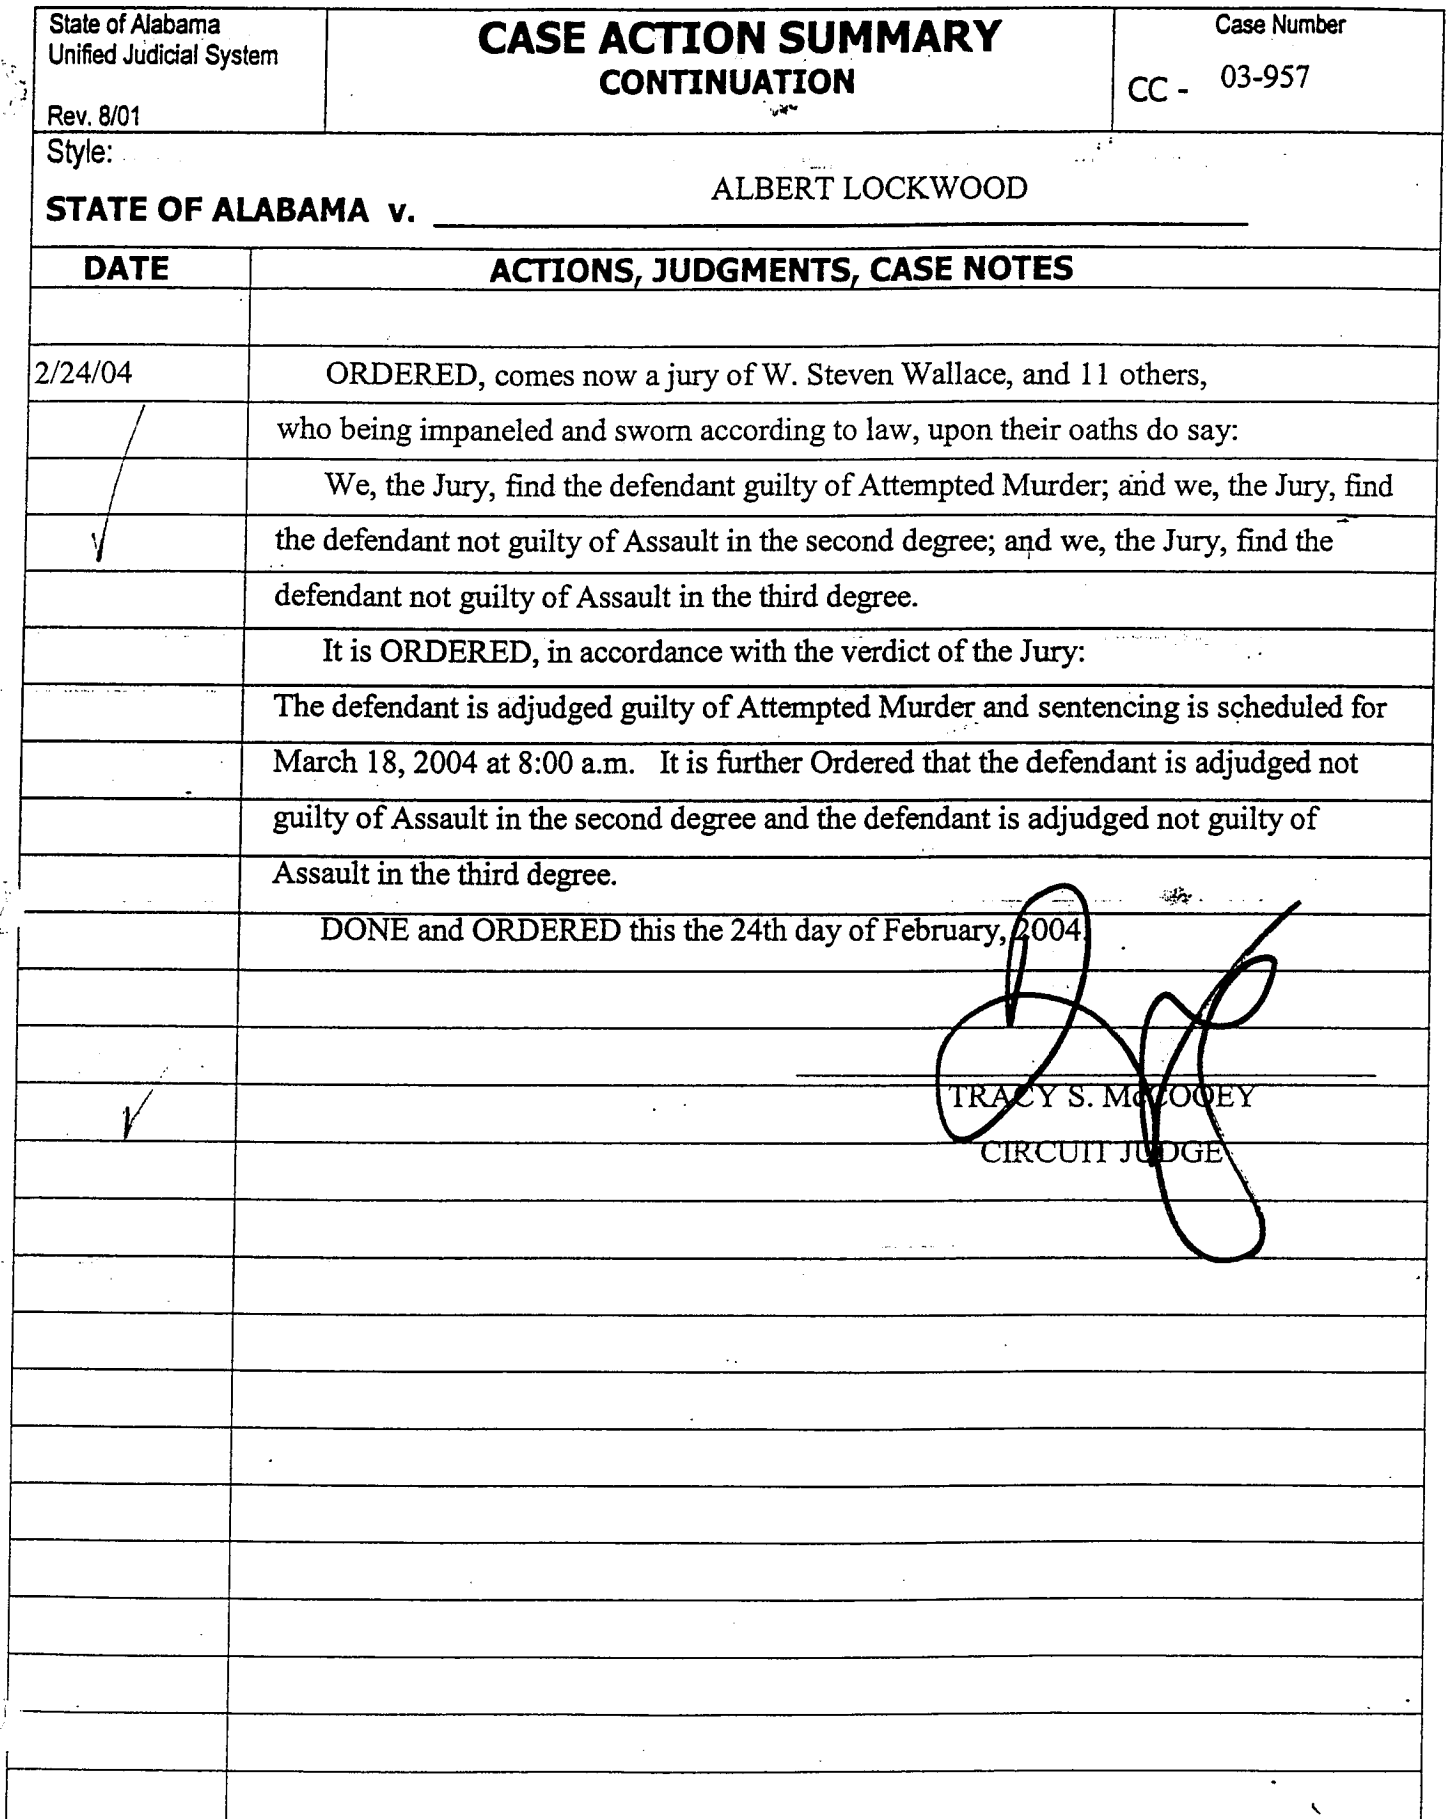 State of Alabama
Unified Judicial System
Rev. 8/01
CASE ACTION SUMMARY
CONTINUATION
Case Number
CC - 03-957
Style:
STATE OF ALABAMA v. ALBERT LOCKWOOD
DATE ACTIONS, JUDGMENTS, CASE NOTES
2/24/04 ORDERED, comes now a jury of W. Steven Wallace, and 11 others,
who being impaneled and sworn according to law, upon their oaths do say:
We, the Jury, find the defendant guilty of Attempted Murder; and we, the Jury, find
the defendant not guilty of Assault in the second degree; and we, the Jury, find the
defendant not guilty of Assault in the third degree.
It is ORDERED, in accordance with the verdict of the Jury:
The defendant is adjudged guilty of Attempted Murder and sentencing is scheduled for
March 18, 2004 at 8:00 a.m. It is further Ordered that the defendant is adjudged not
guilty of Assault in the second degree and the defendant is adjudged not guilty of
Assault in the third degree.
DONE and ORDERED this the 24th day of February, 2004.
TRACY S. McCOOEY
CIRCUIT JUDGE